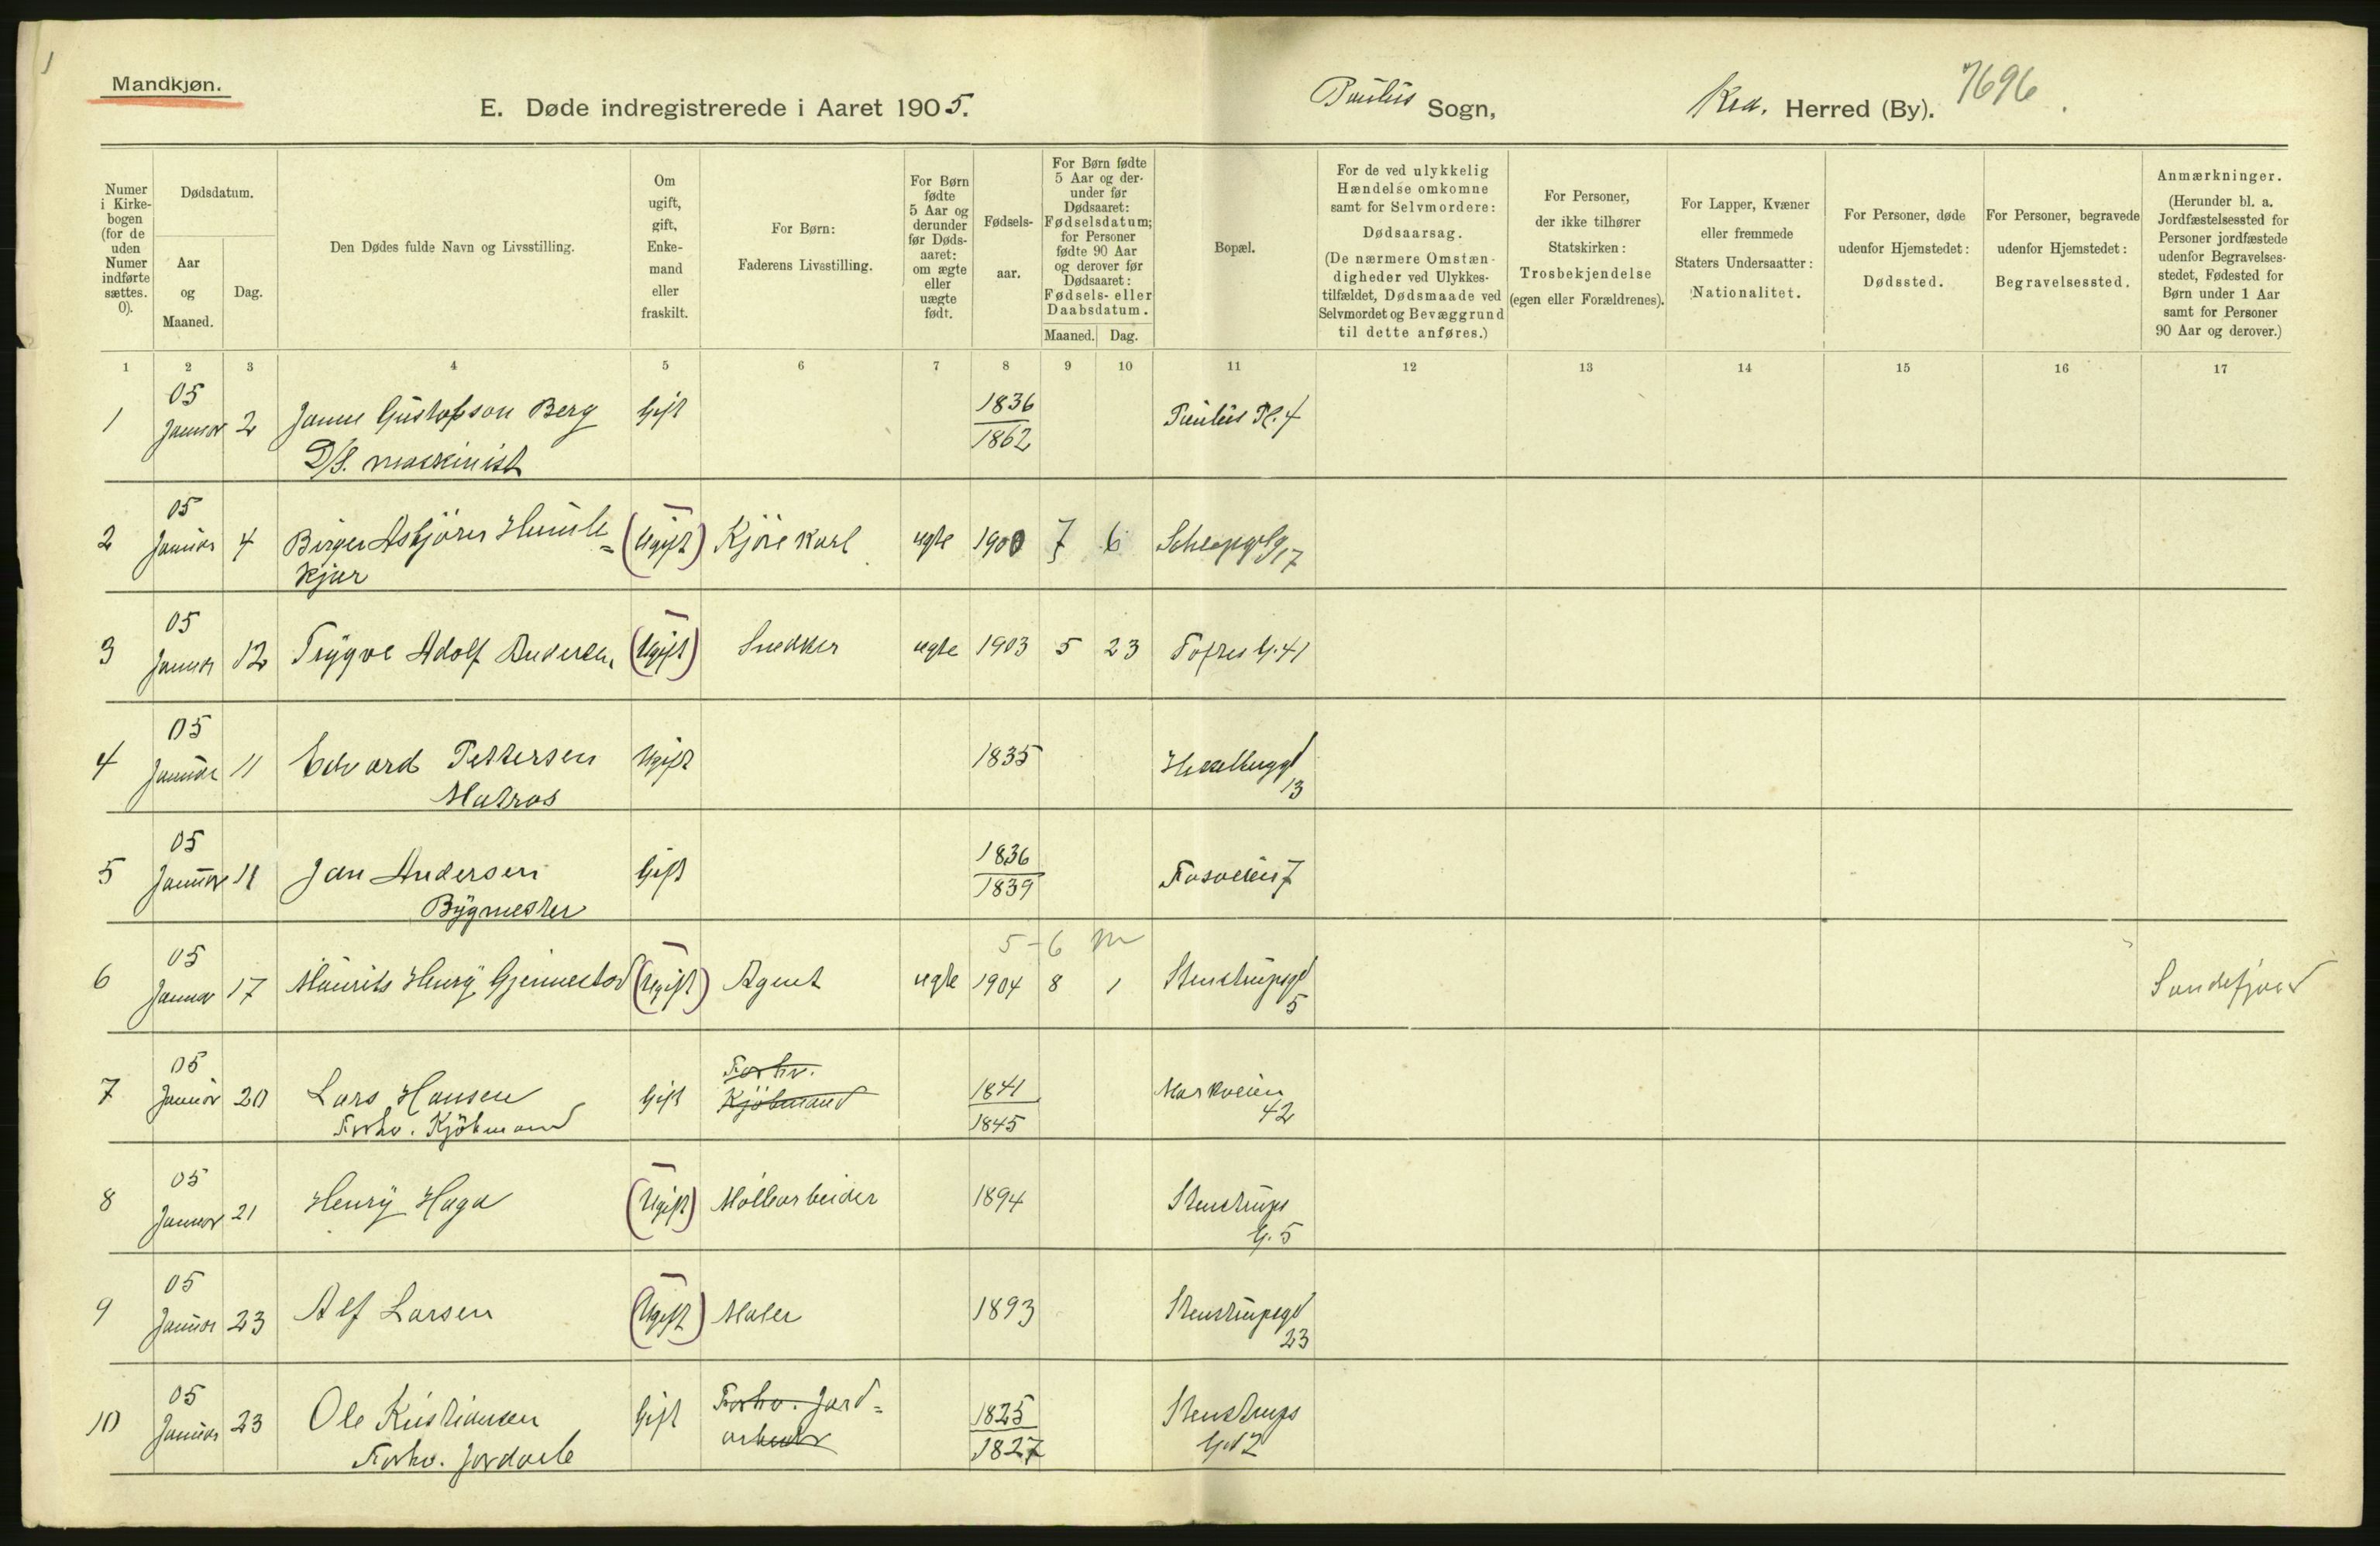 1
Mandkjøn.
E. Døde indregistrerede i Aaret 1905.
Paulus Sogn,
Kra. Herred (By).
7696
Numer i Kirke-bogen (for de uden Numer indførte sættes. 0).
Dødsdatum.
Aar og Maaned.
Dag.
Den Dødes fulde Navn og Livsstilling.
Om ugift, gift, Enke-mand eller fraskilt.
For Børn: Faderens Livsstilling.
For Børn fødte 5 Aar og derunder før Døds-aaret: om ægte eller uægte født.
Fødsels-aar.
For Børn fødte 5 Aar og der-under før Dødsaaret: Fødselsdatum; for Personer fødte 90 Aar og derover før Dødsaaret: Fødsels- eller Daabsdatum.
Maaned. Dag.
Bopæl.
For de ved ulykkelig Hændelse omkomne samt for Selvmordere: Dødsaarsag. (De nærmere Omstæn-digheder ved Ulykkes-tilfældet, Dødsmaade ved Selvmordet og Bevæggrund til dette anføres.)
For Personer, der ikke tilhører Statskirken: Trosbekjendelse (egen eller Forældrenes).
For Lapper, Kvæner eller fremmede Staters Undersaatter: Nationalitet.
For Personer, døde udenfor Hjemstedet: Dødssted.
For Personer, begravede udenfor Hjemstedet: Begravelsessted.
Anmærkninger. (Herunder bl. a. Jordfæstelsessted for Personer jordfæstede udenfor Begravelses-stedet, Fødested for Børn under 1 Aar samt for Personer 90 Aar og derover.)
1 2 3 4 5 6 7 8 9 10 11 12 13 14 15 16 17
05
1 Januar 2 Gustafsson Berg Gift 1836 Paulus Pl. 4
D/S. maskinist 1862
05
2 Januar 4 Birger Asbjörn Humle= (Ugift) Kjörekarl ægte 1900 7 6 17
kjær
05
3 Januar 12 Trygve Adolf Andersen (Ugift) Snedker ægte 1903 5 23 Toftes G. 41
05
4 Januar 11 Edvard Pettersen Ugift 1835
Matros 13
05
5 Januar 11 Jan Andersen Gift 1836 Fosveien 7
Bygmester 1839
5-6 m
05
6 Januar 17 Maurits Henry Gjennestad (Ugift) Agent ægte 1904 8 1 Stenstrupsgd Sandefjord
5
05 Forhv.
7 Januar 20 Lars Hansen Gift Kjöbmand 1841 Markveien
Forhv. Kjöbmand 1845 42
05
8 Januar 21 Henry Haga (Ugift) Möllearbeider 1894 Stenstrups
G. 5
05
9 Januar 23 Alf Larsen (Ugift) Maler 1893 Stenstrupsgd
23
05
10 Januar 23 Ole Kristiansen Gift Forhv. Jord= 1825 Stenstrups
Forhv. Jordarb arbeider 1827